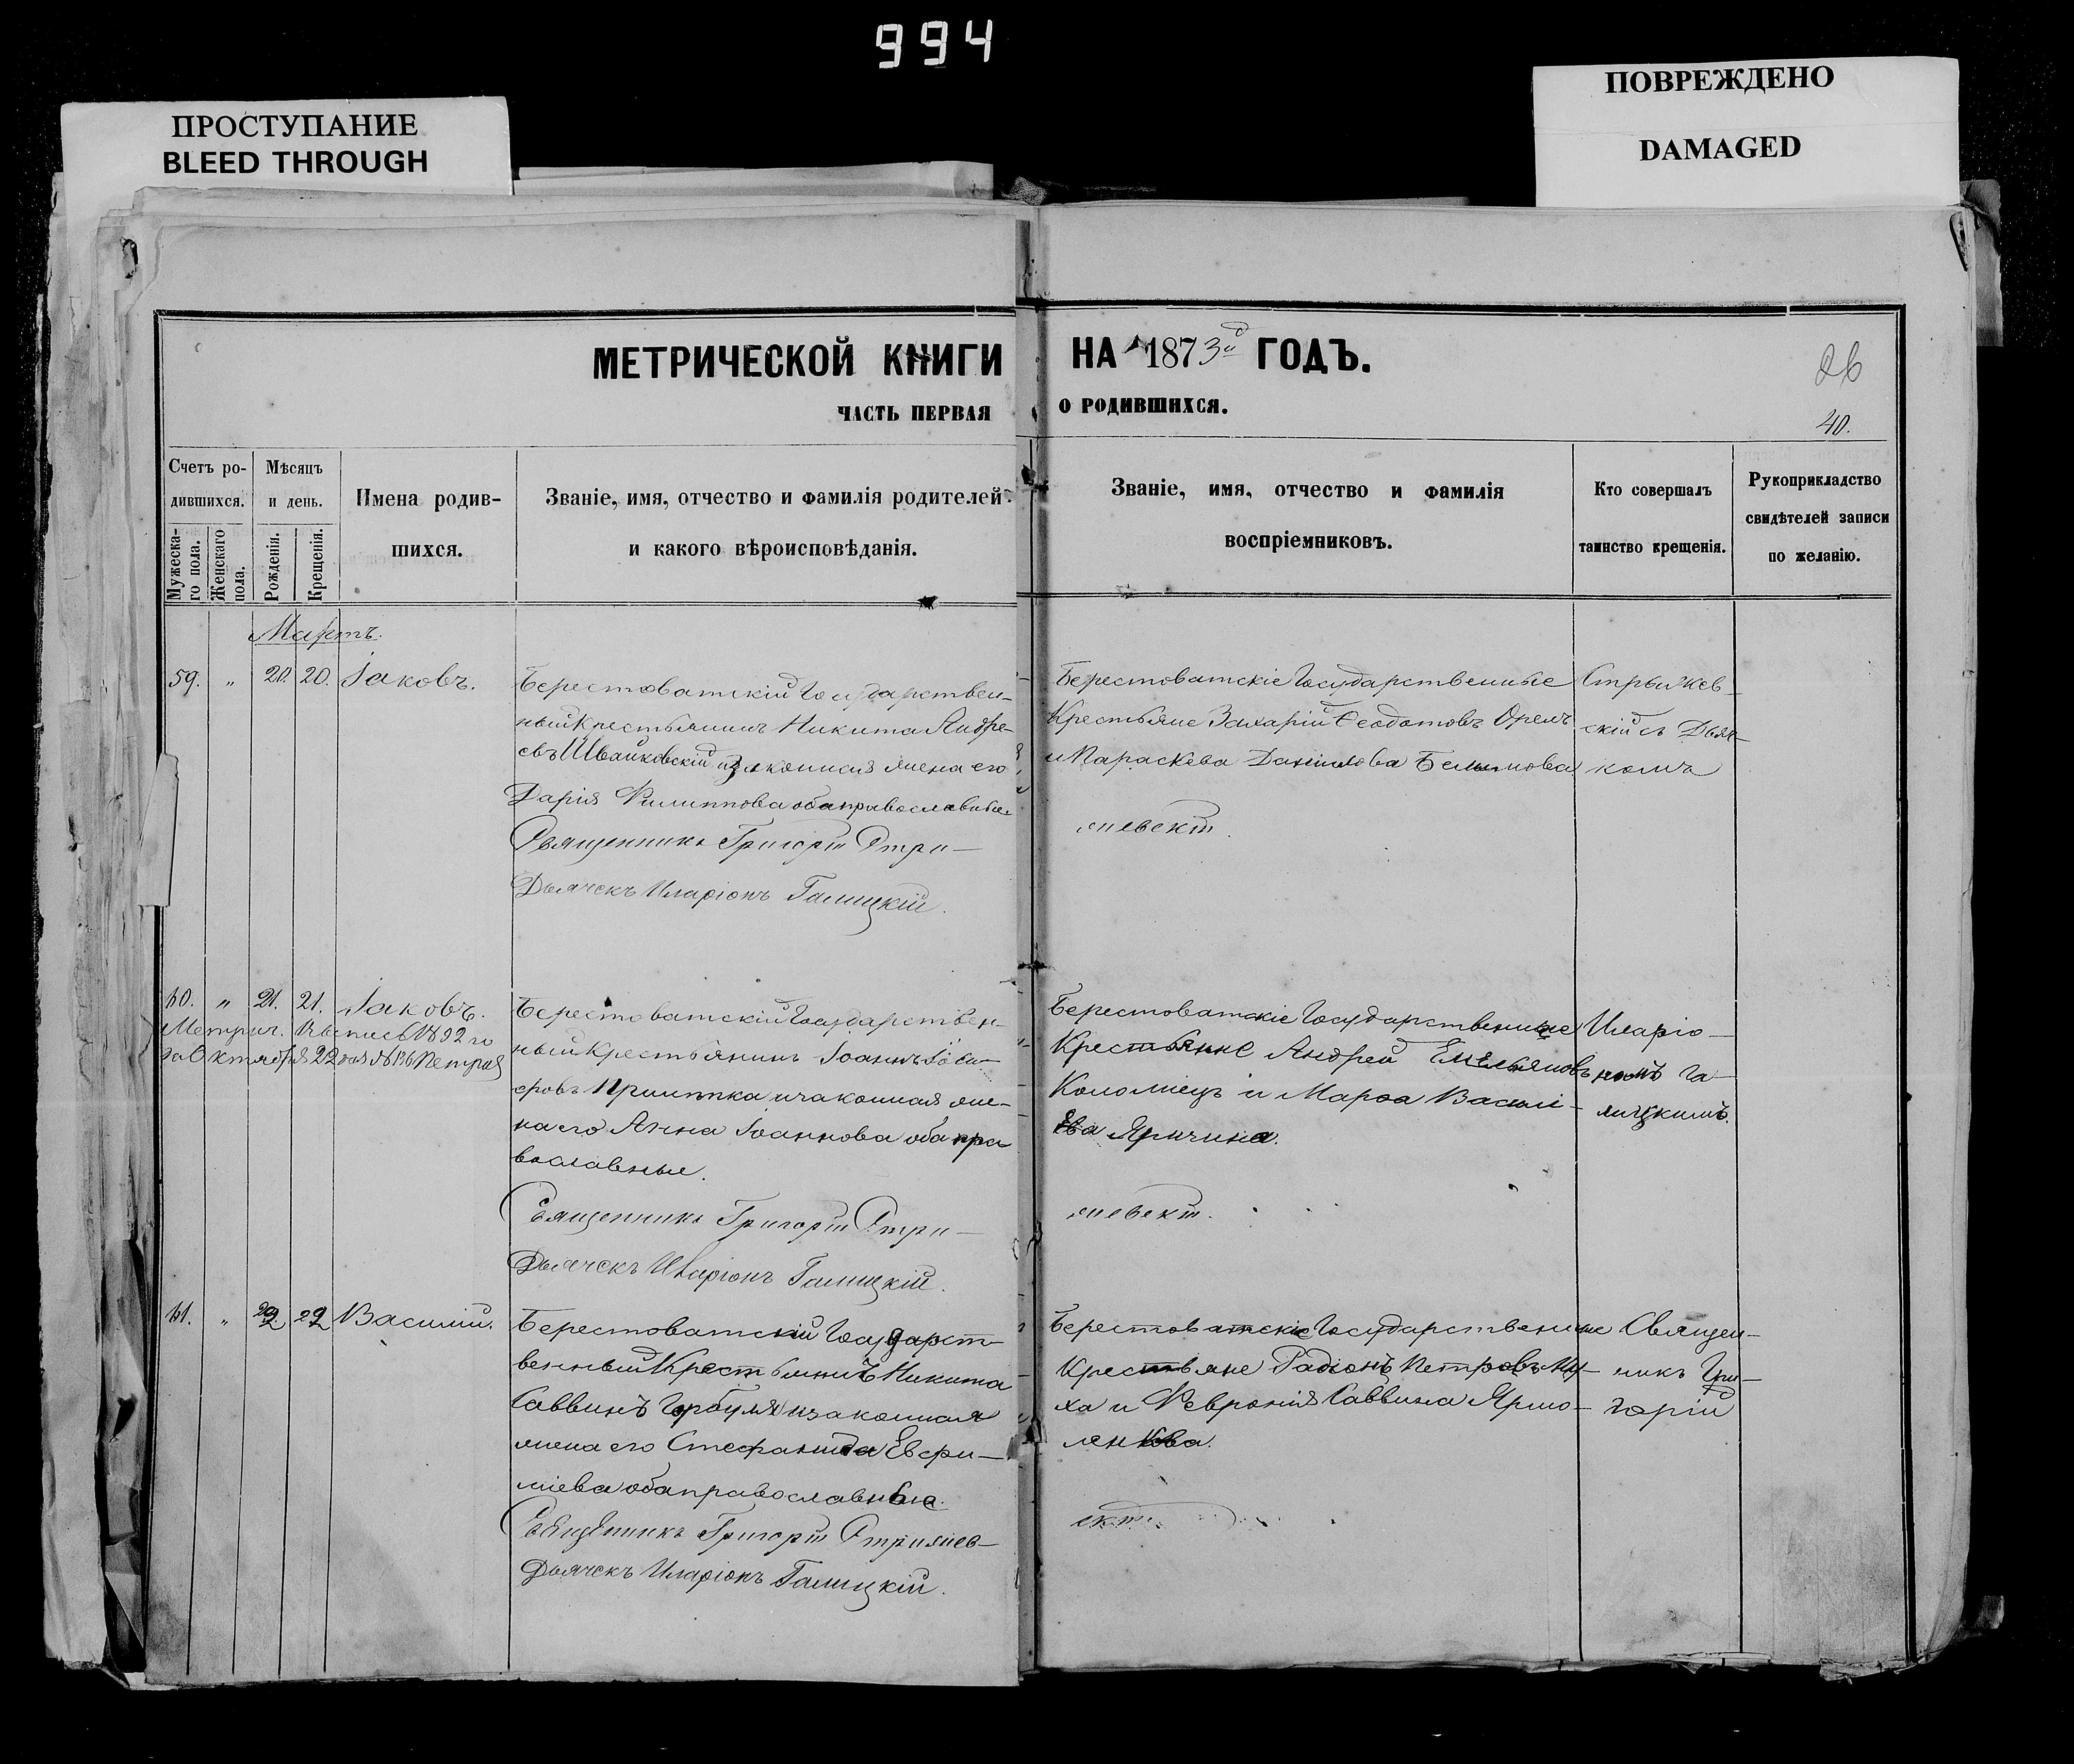 994
ПРОСТУПАНИЕ
BLEED THROUGH
ПОВРЕЖДЕНО
DAMAGED
МЕТРИЧЕСКОЙ КНИГИ НА 1873й ГОДЪ.
ЧАСТЬ ПЕРВАЯ О РОДИВШИХСЯ.
26
40.
Счетъ ро-
дившихся.
Мужеска-
го пола.
Женскаго
пола.
Мѣсяцъ
и день.
Рожденія.
Крещенія.
Имена родив-
шихся.
Званіе, имя, отчество и фамилія родителей
и какого вѣроисповѣданія.
Званіе, имя, отчество и фамилія
воспріемниковъ.
Кто совершалъ
таинство крещенія.
Рукоприкладство
свидѣтелей записи
по желанію.
Мартъ.
59. „ 20. 20. Іаковъ.
Берестоватскій Государствен-
ный Крестьянинъ Никита Андре-
евъ Швайковскій и законная жена его
Дарія Филиппова оба православные
Священникъ Григорій Стри-
Дьячекъ Иларіонъ Галицкій.
Берестоватскіе Государственные
Крестьяне Захарій Феодотовъ Орелъ
и Параскева Даніилова
жевскій.
Стрыжев-
скій съ Дьяч-
комъ
60. „ 21. 21. Іаковъ.
Метрич. выпись 1892 го
да Октября 22 дня №
Берестоватскій Государствен-
ный Крестьянинъ Іоаннъ
и законная же-
на его Анна Іоаннова оба пра
вославные.
Священникъ Григорій Стри-
Дьячекъ Иларіонъ Галицкій.
Берестоватскіе Государственные
Крестьяне Андрей Емельяновъ
Коломіецъ и Марфа Василі-
ева
жевскій.
Иларіо-
номъ Га-
лицкимъ.
61. „ 22 22 Василій.
Берестоватскій Государст-
венный Крестьянинъ Никита
Саввинъ Горбуля и законная
жена его Стефанида Евфи-
міева оба православные.
Священникъ Григорій Стрижев-
Дьячекъ Иларіонъ Галицкій.
Берестоватскіе Государственные
Крестьяне Радіонъ Петровъ Му-
ха и Февронія Саввина Ярмо-
ленкова.
скій.
Священ-
никъ Гри-
горій